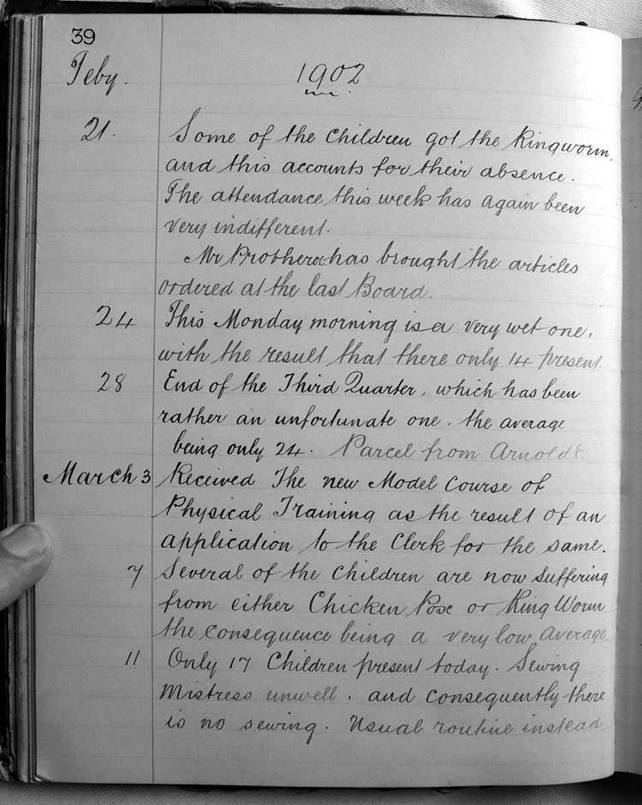 39
Feby. 1902
21. Some of the Children got the Ringworm,
and this accounts for their absence.
The attendance this week has again been
very indifferent.
Mr Prothero has brought the articles
ordered at the last Board.
24 This Monday morning is a very wet one,
with the result that there only 14 present.
28 End of the Third Quarter, which has been
rather an unfortunate one. the average
being only 24. Parcel from Arnold
March 3 Received The new Model Course of
Physical Training as the result of an
application to the Clerk for the same.
7 Several of the Children are now suffering
from either Chicken Pox or Ring Worm
the consequence being a very low average.
11 Only 17 Children present today. Sewing
Mistress unwell. and consequently there
is no sewing. Usual routine instead.